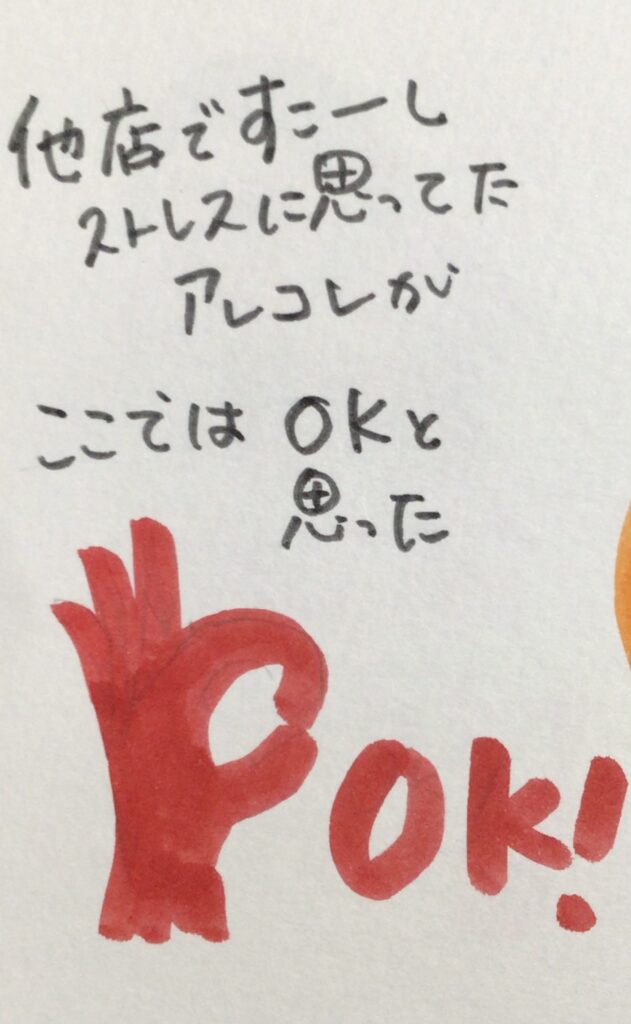 他店ですこーし
ストレスに思ってた
アレコレが
ここでは OKと
思った
OK!